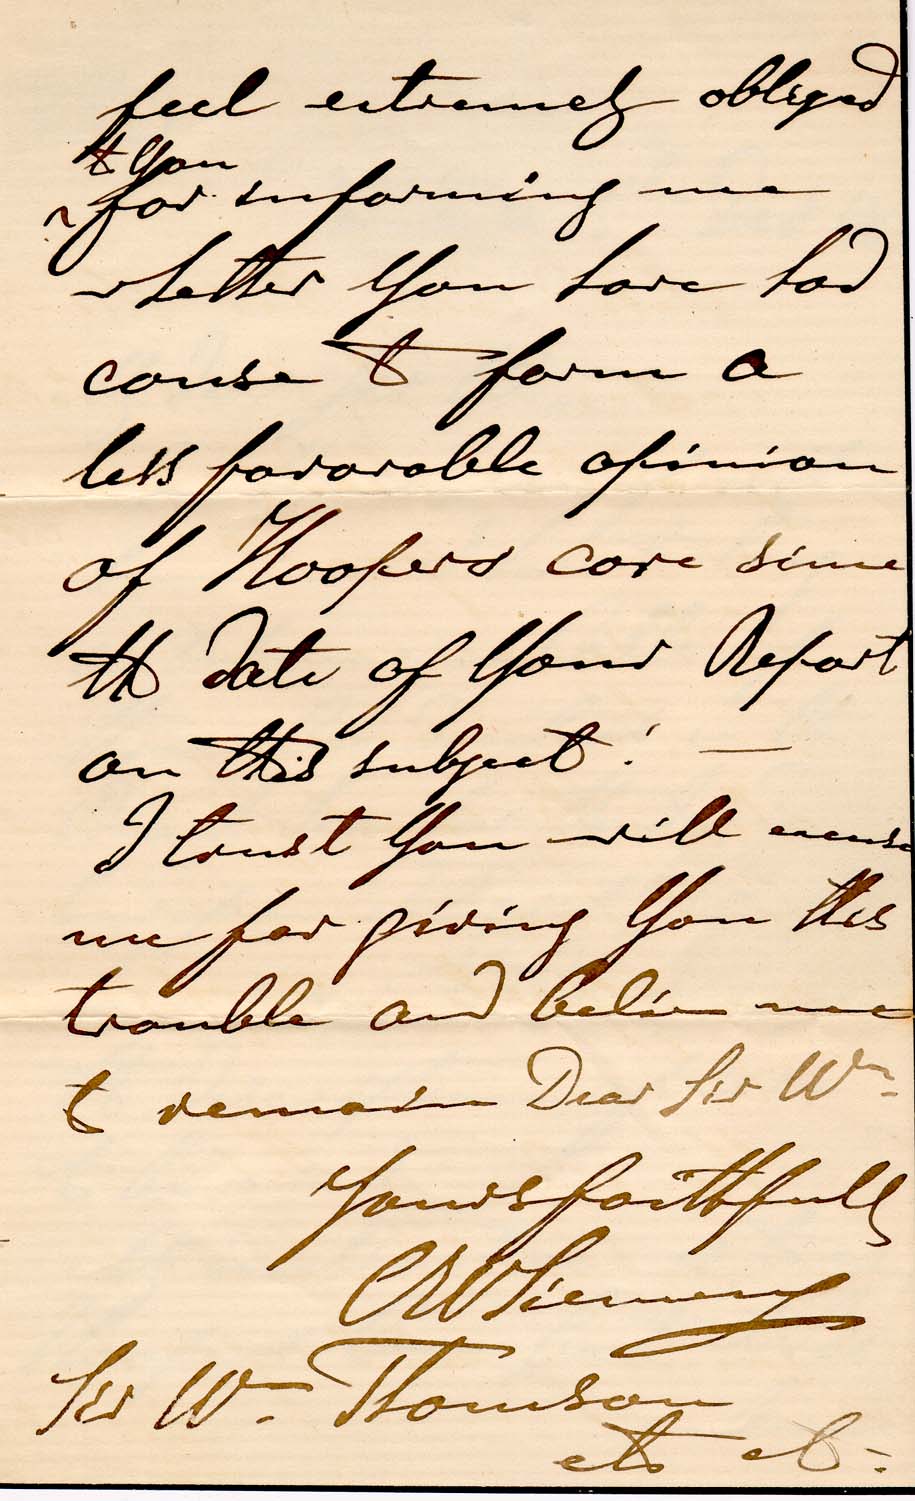 feel extremely obliged
to you
^ for informing me
whether you have had
cause to form a
less favorable opinion
of Hoopers core since
the date of your Report
on this subject! —
I trust you will excuse
me for giving you this
trouble and believe me
to remain Dear Sir Wm.
Yours faithfully
C W Siemens
Sir Wm. Thomson
etc etc.